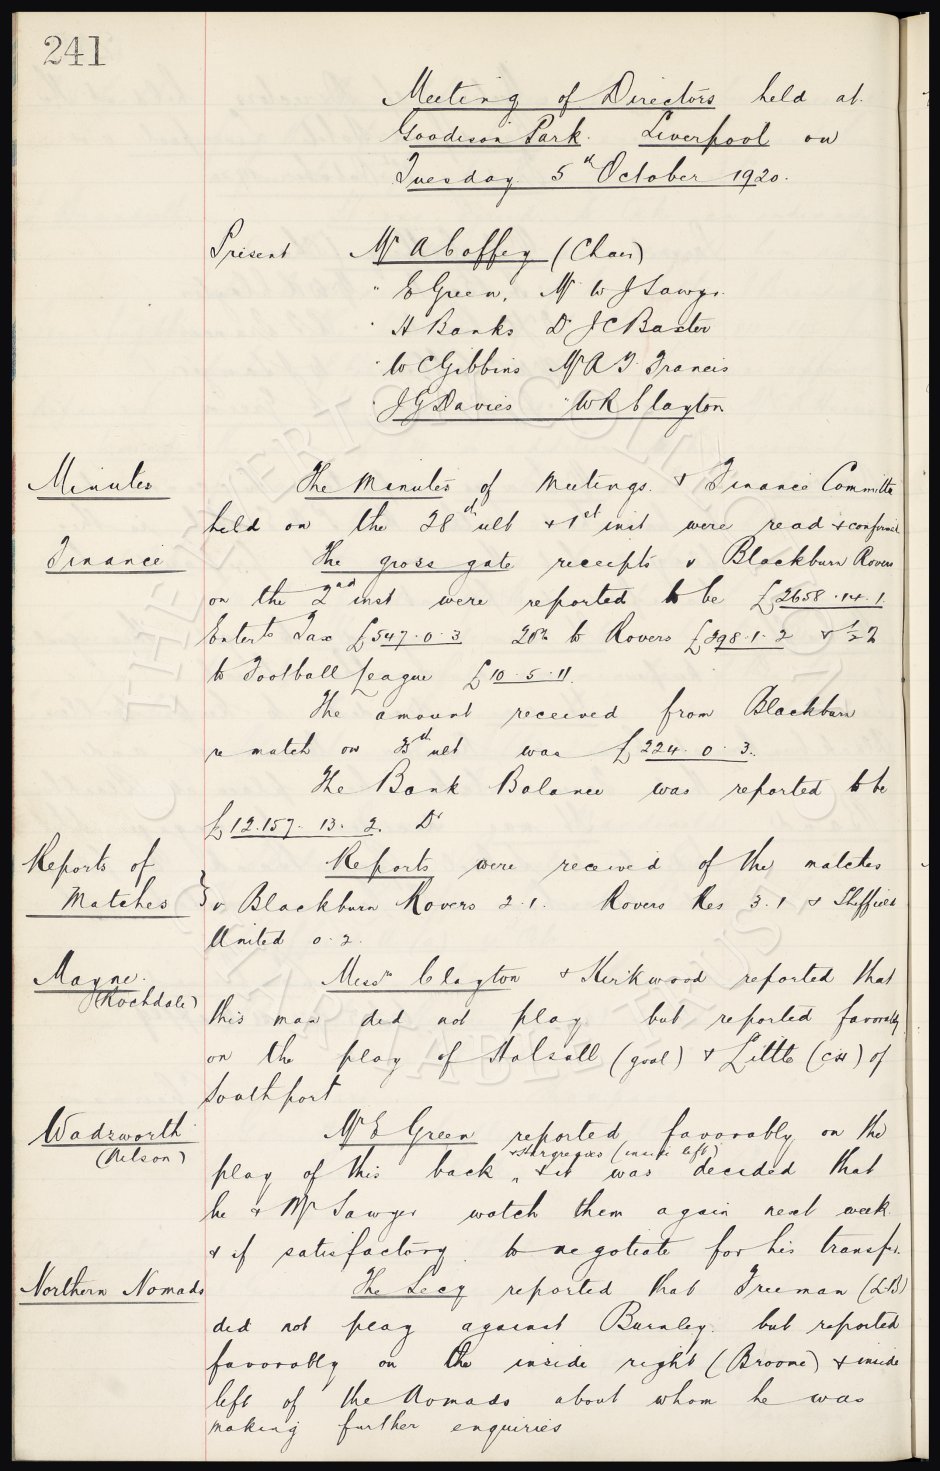 241
Meeting of Directors held at
Goodison Park. Liverpool on
Tuesday 5th October 1920.
Present Mr A Coffey (Chair)
" E Green, Mr W J Sawyer
" H Banks Dr J C Baxter
" W C Gibbins Mr A T Francis
" J G Davies " W R Clayton
Minutes The Minutes of Meetings & Finance Committee
held on the 28th ult & 1st inst were read & confirmed
Finance The gross gate receipts v Blackburn Rovers
on the 2nd inst were reported to be £2658.14.1.
Entert Tax £547.0.3 20% to Rovers £398.1.2 &
to Football League £10.5.11
The amount received from Blackburn
re match on ult was £224.0.3.
The Bank Balance was reported to be
£12.157.13.2. Dr
Reports of Reports were received of the matches
Matches } v Blackburn Rovers 2.1. Rovers Res 3.1 & Sheffield
United 0.2.
Mayne. Messrs Clayton & Kirkwood reported that
(Rochdale)
this man did not play but reported favorably
on the play of Halsall (goal) & Little (CH) of
Southport
Wadsworth Mr E Green reported favorably on the
(Nelson) & Hargreaves (inside left)
play of this back & it was decided that
he & Mr Sawyer watch them again next week
& if satisfactory to negotiate for his transfer.
Northern Nomads The Secy reported that Freeman (L.B)
did not play against Burnley. but reported
favorably on the inside right (Broome) & inside
left of the Nomads about whom he was
making further enquiries